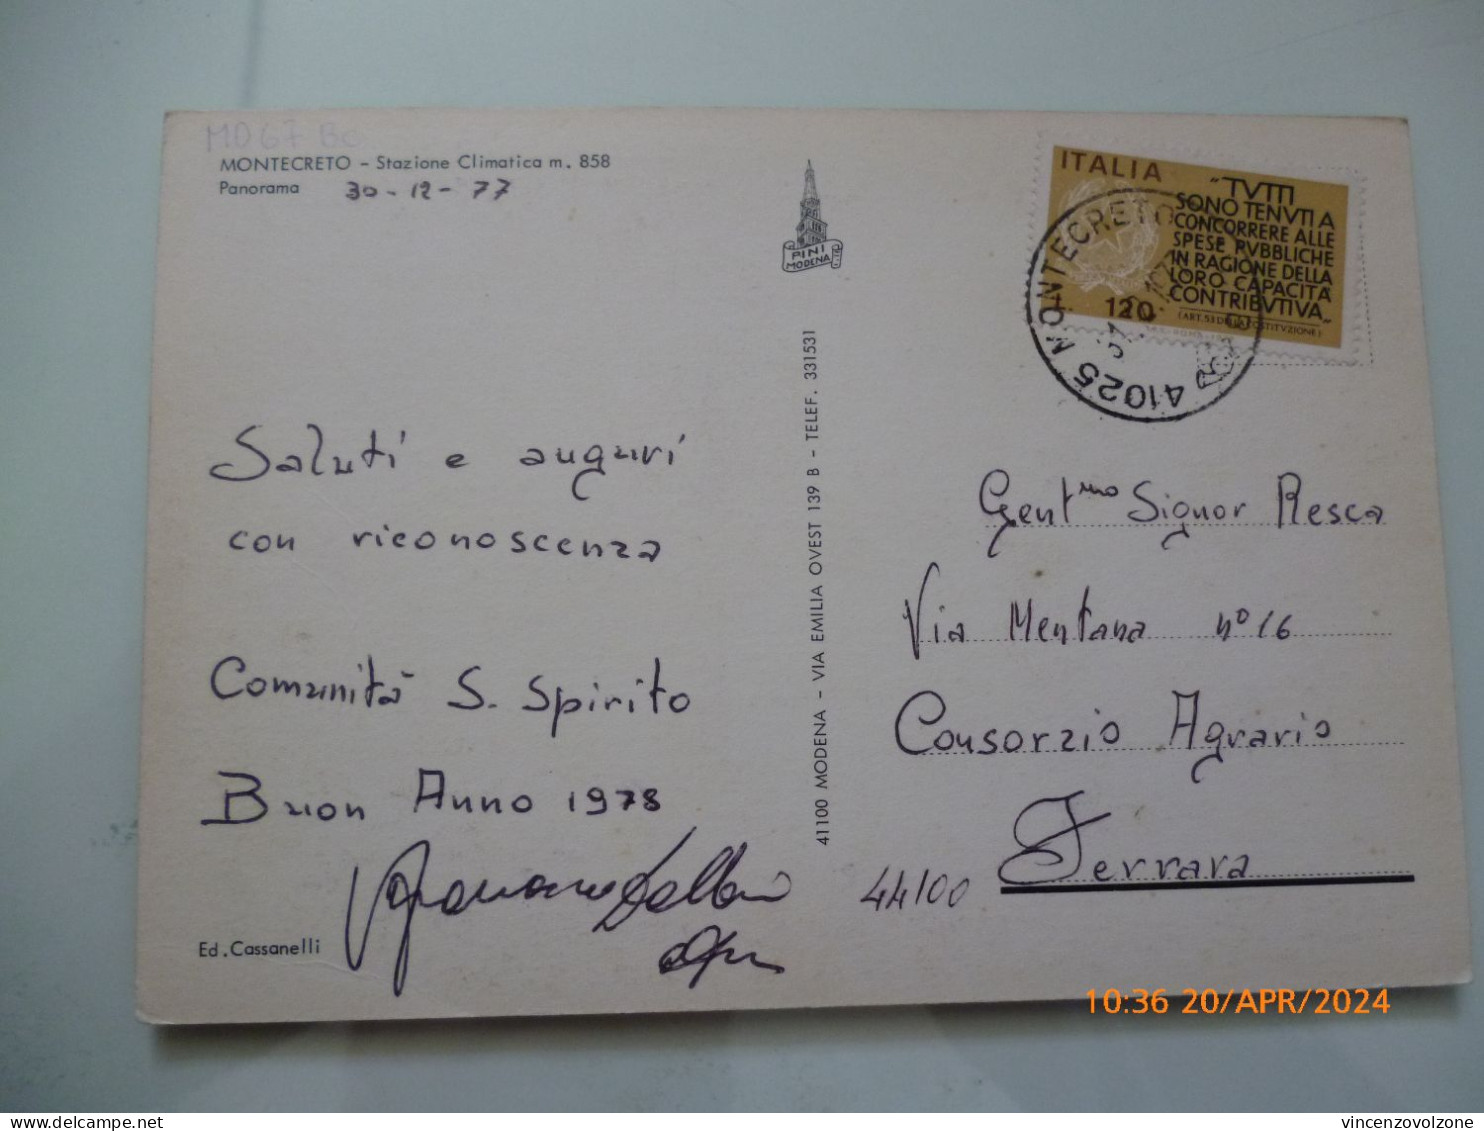 MD67 Bo
MONTECRETO - Stazione Climatica m. 858
Panorama 30-12-77
PINI
MODENA
ITALIA
"TVTTI
SONO TENVTI A
CONCORRERE ALLE
SPESE PVBBLICHE
IN RAGIONE DELLA
LORO CAPACITÀ
CONTRIBVTIVA"
120
41025 MONTECRETO
Saluti e auguri
con riconoscenza
Comunità S. Spirito
Buon Anno 1978
Ed. Cassanelli
41100 MODENA - VIA EMILIA OVEST 139 B - TELEF. 331531
Gent.mo Signor Resca
Via Mentana n° 16
Consorzio Agrario
44100 Ferrara
10:36 20/APR/2024
delcampe.net
vincenzovolzone